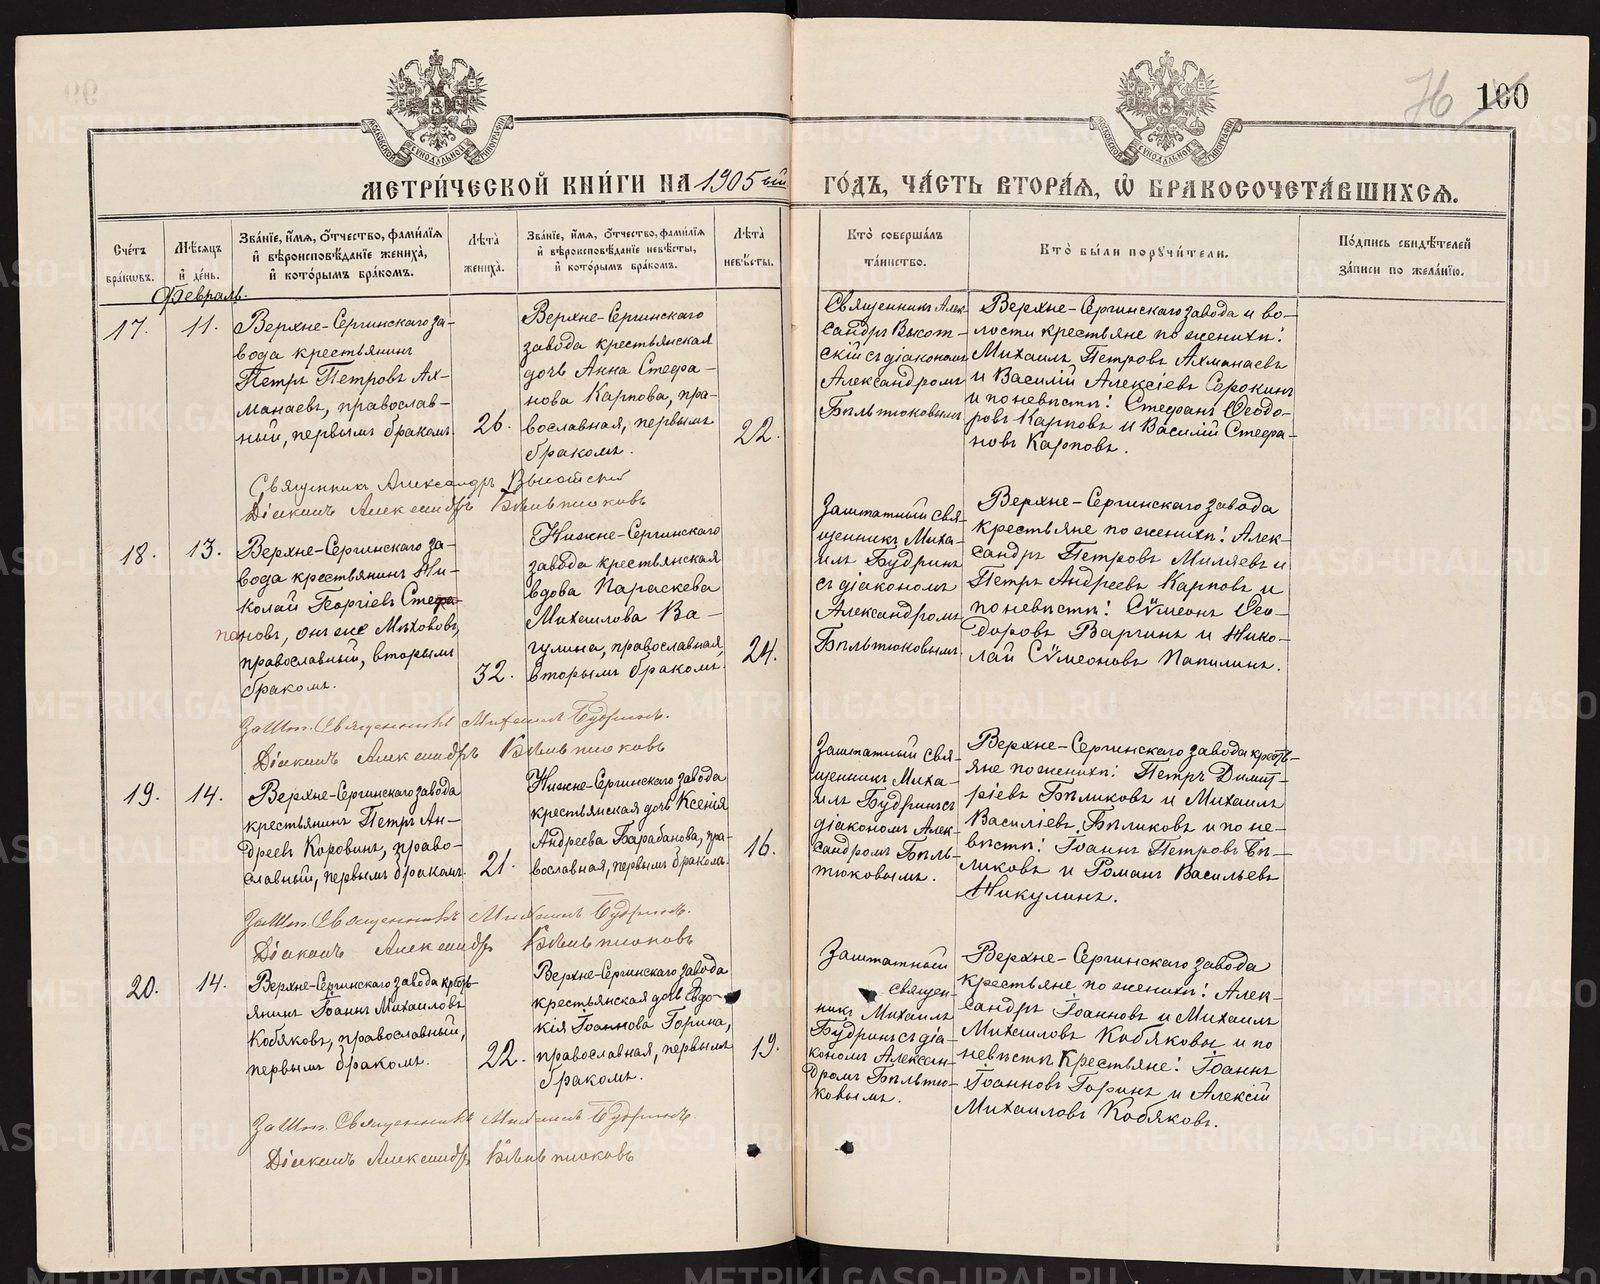 76 100
МЕТРИЧЕСКОЙ КНИГИ НА 1905 ый ГОДЪ, ЧАСТЬ ВТОРАЯ, Ѡ БРАКОСОЧЕТАВШИХСЯ.
Счетъ
браковъ.
Мѣсяцъ
и день.
Званіе, имя, отчество, фамилія
и вѣроисповѣданіе жениха,
и которымъ бракомъ.
Лѣта
жениха.
Званіе, имя, отчество, фамилія
и вѣроисповѣданіе невѣсты,
и которымъ бракомъ.
Лѣта
невѣсты.
Кто совершалъ
таинство.
Кто были поручители.
Подпись свидѣтелей
записи по желанію.
Февраль.
17.
11.
Верхне-Сергинскаго за-
вода крестьянинъ
Петръ Петровъ Ах-
манаевъ, православ-
ный, первымъ бракомъ.
26.
Верхне-Сергинскаго
завода крестьянская
дочь Анна Стефа-
нова Карпова, пра-
вославная, первымъ
бракомъ.
22.
Священникъ Алек-
сандръ Высот-
скій съ діакономъ
Александромъ
Бѣльтюковымъ
Верхне-Сергинскаго завода и во-
лости крестьяне по женихѣ:
Михаилъ Петровъ Ахманаевъ
и Василій Алексіевъ Сорокинъ
и по невѣстѣ: Стефанъ Ѳеодо-
ровъ Карповъ и Василій Стефа-
новъ Карповъ.
Священникъ Александръ Высотскій
Діаконъ Александръ Бѣльтюковъ
18.
13.
Верхне-Сергинскаго за-
вода крестьянинъ Ни-
колай Георгіевъ Сте
пановъ, онъ же Мѣховъ,
православный, вторымъ
бракомъ.
32.
Нижне-Сергинскаго
завода крестьянская
вдова Параскева
Михаилова Ва-
гулина, православная,
вторымъ бракомъ.
24.
Заштатный свя-
щенникъ Миха-
илъ Будринъ
съ діакономъ
Александромъ
Бѣльтюковымъ.
Верхне-Сергинскаго завода
крестьяне по женихѣ: Алек-
сандръ Петровъ Миляевъ и
Петръ Андреевъ Карповъ и
по невѣстѣ: Сѵмеонъ Ѳео-
доровъ Варгинъ и Нико-
лай Сѵмеоновъ Папилинъ.
Зашт. Священникъ Михаилъ Будринъ.
Діаконъ Александръ Бѣльтюковъ
19.
14.
Верхне-Сергинскаго завода
крестьянинъ Петръ Ан-
дреевъ Коровинъ, право-
славный, первымъ бракомъ.
21.
Нижне-Сергинскаго завода
крестьянская дочь Ксенія
Андреева Барабанова, пра-
вославная, первымъ бракомъ.
16.
Заштатный свя-
щенникъ Миха-
илъ Будринъ съ
діакономъ Алек-
сандромъ Бѣль-
тюковымъ.
Верхне-Сергинскаго завода кресть-
яне по женихѣ: Петръ Димит-
ріевъ Бѣликовъ и Михаилъ
Василіевъ Бѣликовъ и по не-
вѣстѣ: Іоаннъ Петровъ Бѣ-
ликовъ и Романъ Васильевъ
Никулинъ.
Зашт. Священникъ Михаилъ Будринъ.
Діаконъ Александръ Бѣльтюковъ
20.
14.
Верхне-Сергинскаго завода кресть-
янинъ Іоаннъ Михаиловъ
Кобяковъ, православный,
первымъ бракомъ.
22.
Верхне-Сергинскаго завода
крестьянская дочь Евдо-
кія Іоаннова Горина,
православная, первымъ
бракомъ.
19.
Заштатный
священ-
никъ Михаилъ
Будринъ съ діа-
кономъ Алексан-
дромъ Бѣльтю-
ковымъ.
Верхне-Сергинскаго завода
крестьяне по женихѣ: Алек-
сандръ Іоанновъ и Михаилъ
Михаиловъ Кобяковы и по
невѣстѣ крестьяне: Іоаннъ
Іоанновъ Горинъ и Алексій
Михаиловъ Кобяковъ.
Зашт. Священникъ Михаилъ Будринъ.
Діаконъ Александръ Бѣльтюковъ
METRIKI.GASO-URAL.RU